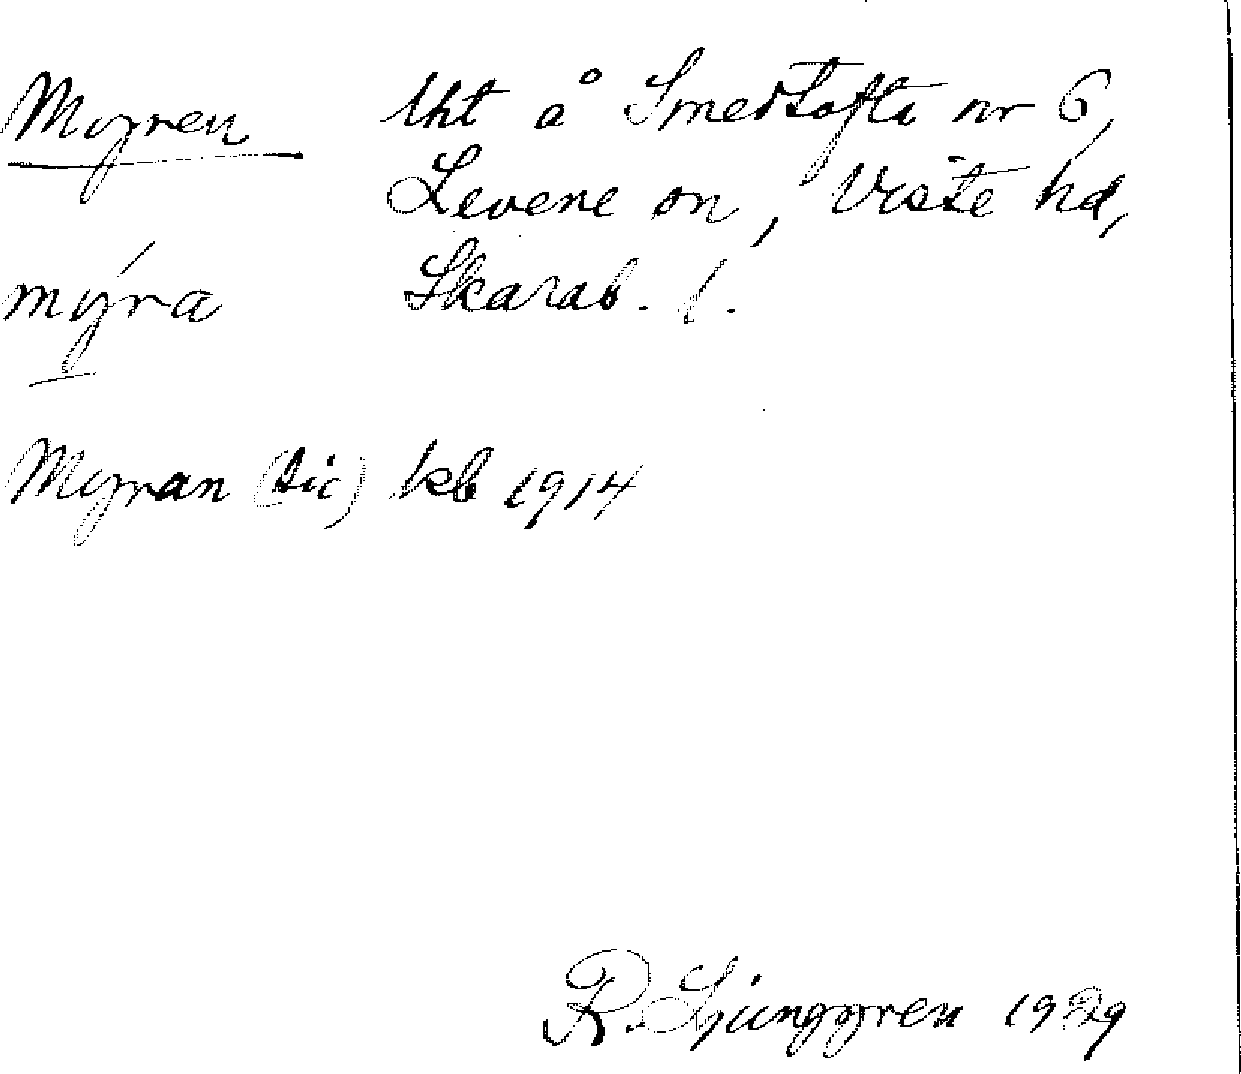 Myren lht å Smedtofta nr 6,
Levene sn, Viste hd,
mýra Skarab. l.
Myran (sic) kb 1914
R. Ljunggren 1929